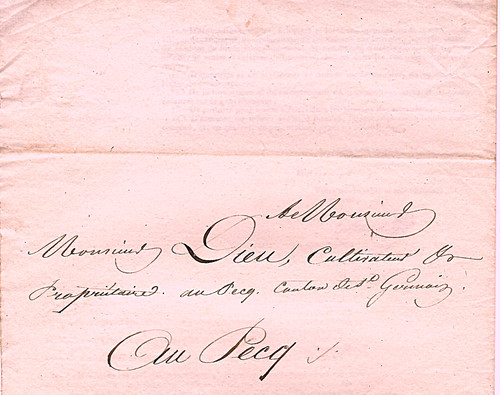 A Monsieur
Monsieur Dieu, Cultivateur &
Propriétaire. au Pecq. Canton de St. Germain.
Au Pecq